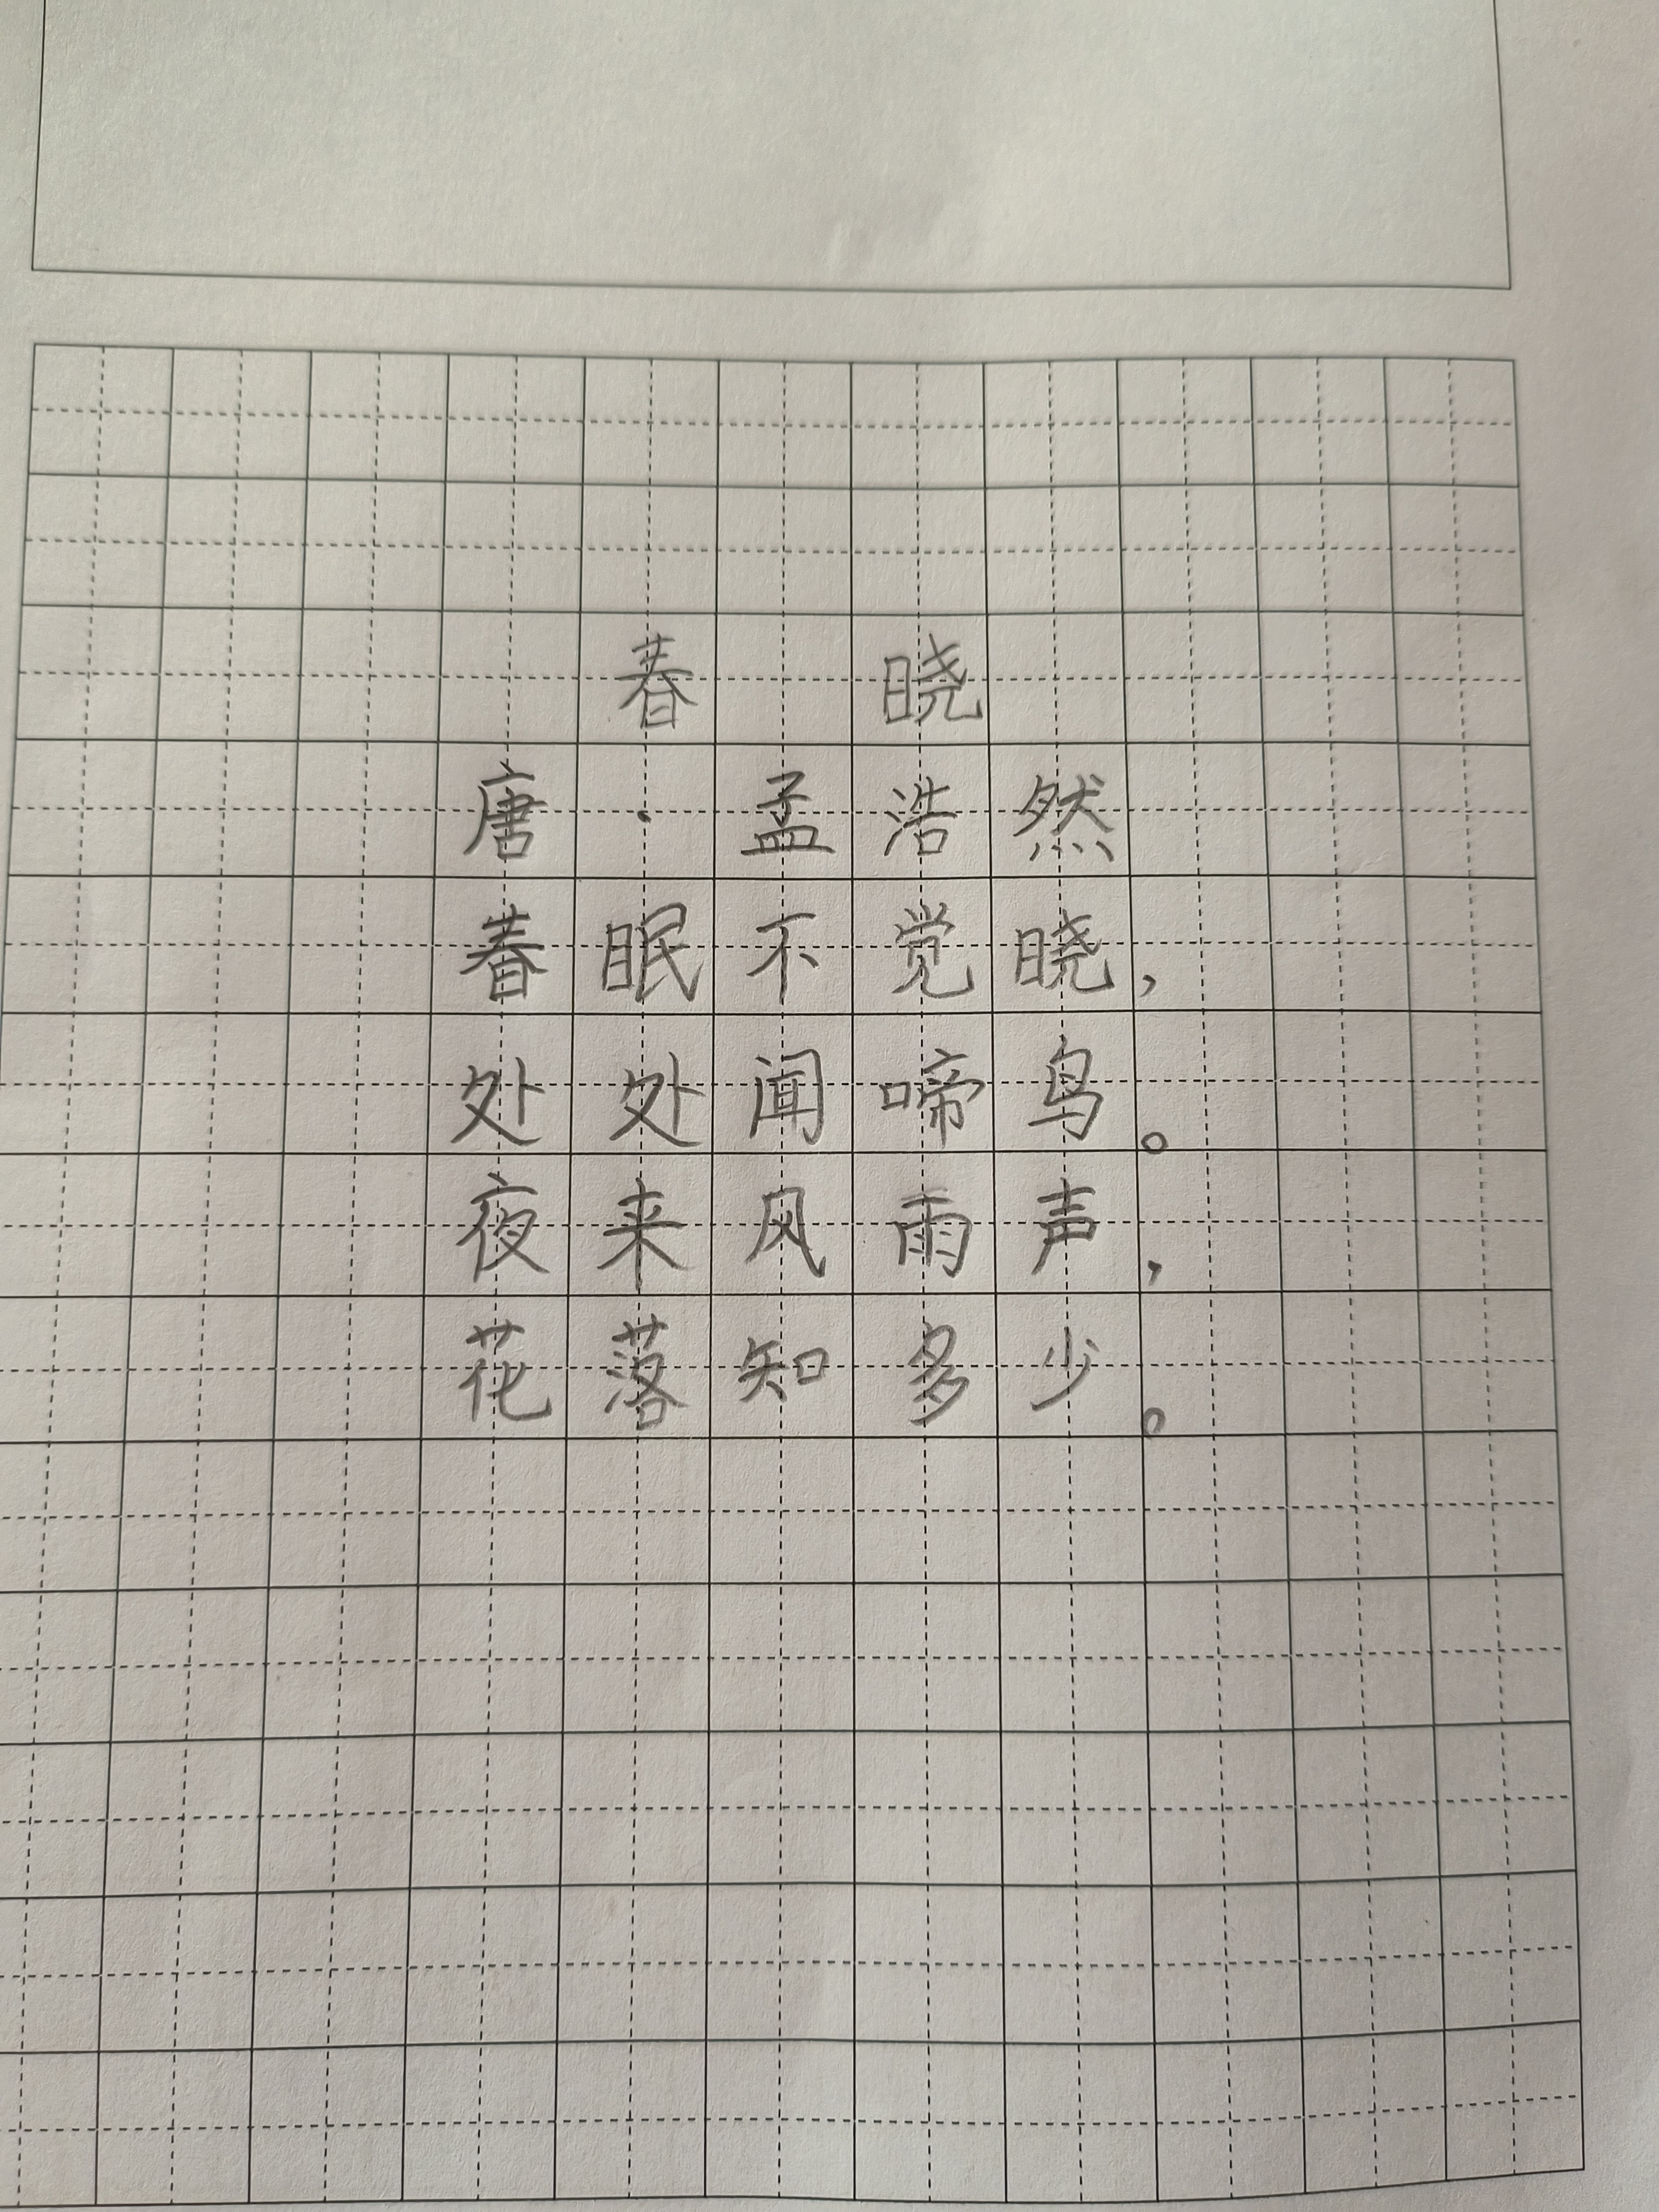 春 晓
唐·孟浩然
春眠不觉晓，
处处闻啼鸟。
夜来风雨声，
花落知多少。